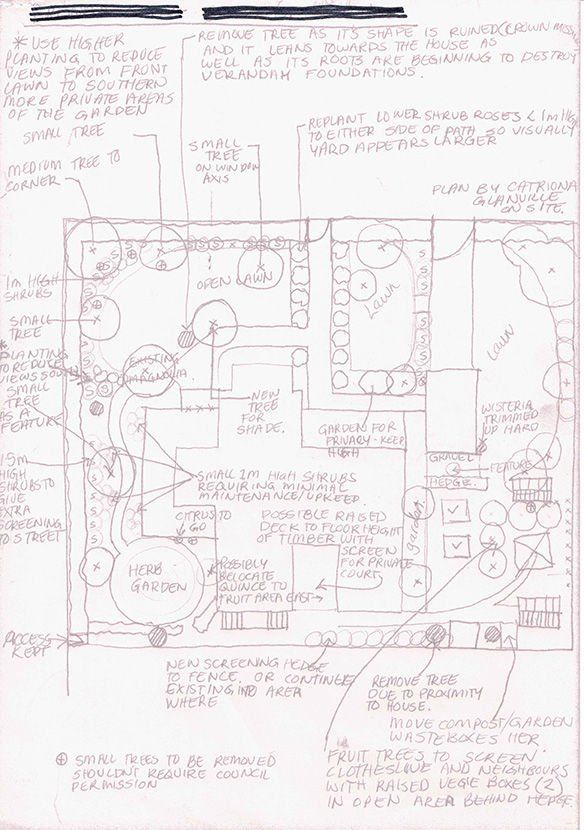 * USE HIGHER
PLANTING TO REDUCE
VIEWS FROM FRONT
LAWN TO SOUTHERN
MORE PRIVATE AREAS
OF THE GARDEN
REMOVE TREE AS IT'S SHAPE IS RUINED (CROWN
AND IT LEANS TOWARDS THE HOUSE AS
WELL AS ITS ROOTS ARE BEGINNING TO DESTROY
VERANDAH FOUNDATIONS.
SMALL TREE
MEDIUM TREE TO
CORNER
SMALL
TREE
ON WINDOW
AXIS
REPLANT LOWER SHRUB ROSES < 1m HIGH
TO EITHER SIDE OF PATH SO VISUALLY
YARD APPEARS LARGER
PLAN BY CATRIONA
GLANVILLE
ON SITE.
1m HIGH
SHRUBS
OPEN LAWN
Lawn
Lawn
SMALL
TREE
* PLANTING
TO REDUCE
VIEWS SOUTH
SMALL
TREE
AS A
FEATURE
EXISTING
MAGNOLIA
NEW
TREE
FOR
SHADE.
GARDEN FOR
PRIVACY - KEEP
HIGH
WISTERIA
TRIMMED
UP HARD
GRAVEL
FEATURE
HEDGE
1.5m
HIGH
SHRUBS TO
GIVE
EXTRA
SCREENING
TO STREET
SMALL 1M HIGH SHRUBS
REQUIRING MINIMAL
MAINTENANCE/UPKEEP
CITRUS TO
GO
POSSIBLE RAISED
DECK TO FLOOR HEIGHT
OF TIMBER WITH
SCREEN
FOR PRIVATE
COURT
garden
HERB
GARDEN
* POSSIBLY
RELOCATE
QUINCE TO
FRUIT AREA EAST
ACCESS
KEPT
NEW SCREENING HEDGE
TO FENCE. OR CONTINUE
EXISTING INTO AREA
WHERE
REMOVE TREE
DUE TO PROXIMITY
TO HOUSE.
MOVE COMPOST/GARDEN
WASTE BOXES HER
⊕ SMALL TREES TO BE REMOVED
SHOULDN'T REQUIRE COUNCIL
PERMISSION
FRUIT TREES TO SCREEN
CLOTHESLINE AND NEIGHBOURS
WITH RAISED VEGIE BOXES (2)
IN OPEN AREA BEHIND HEDGE.